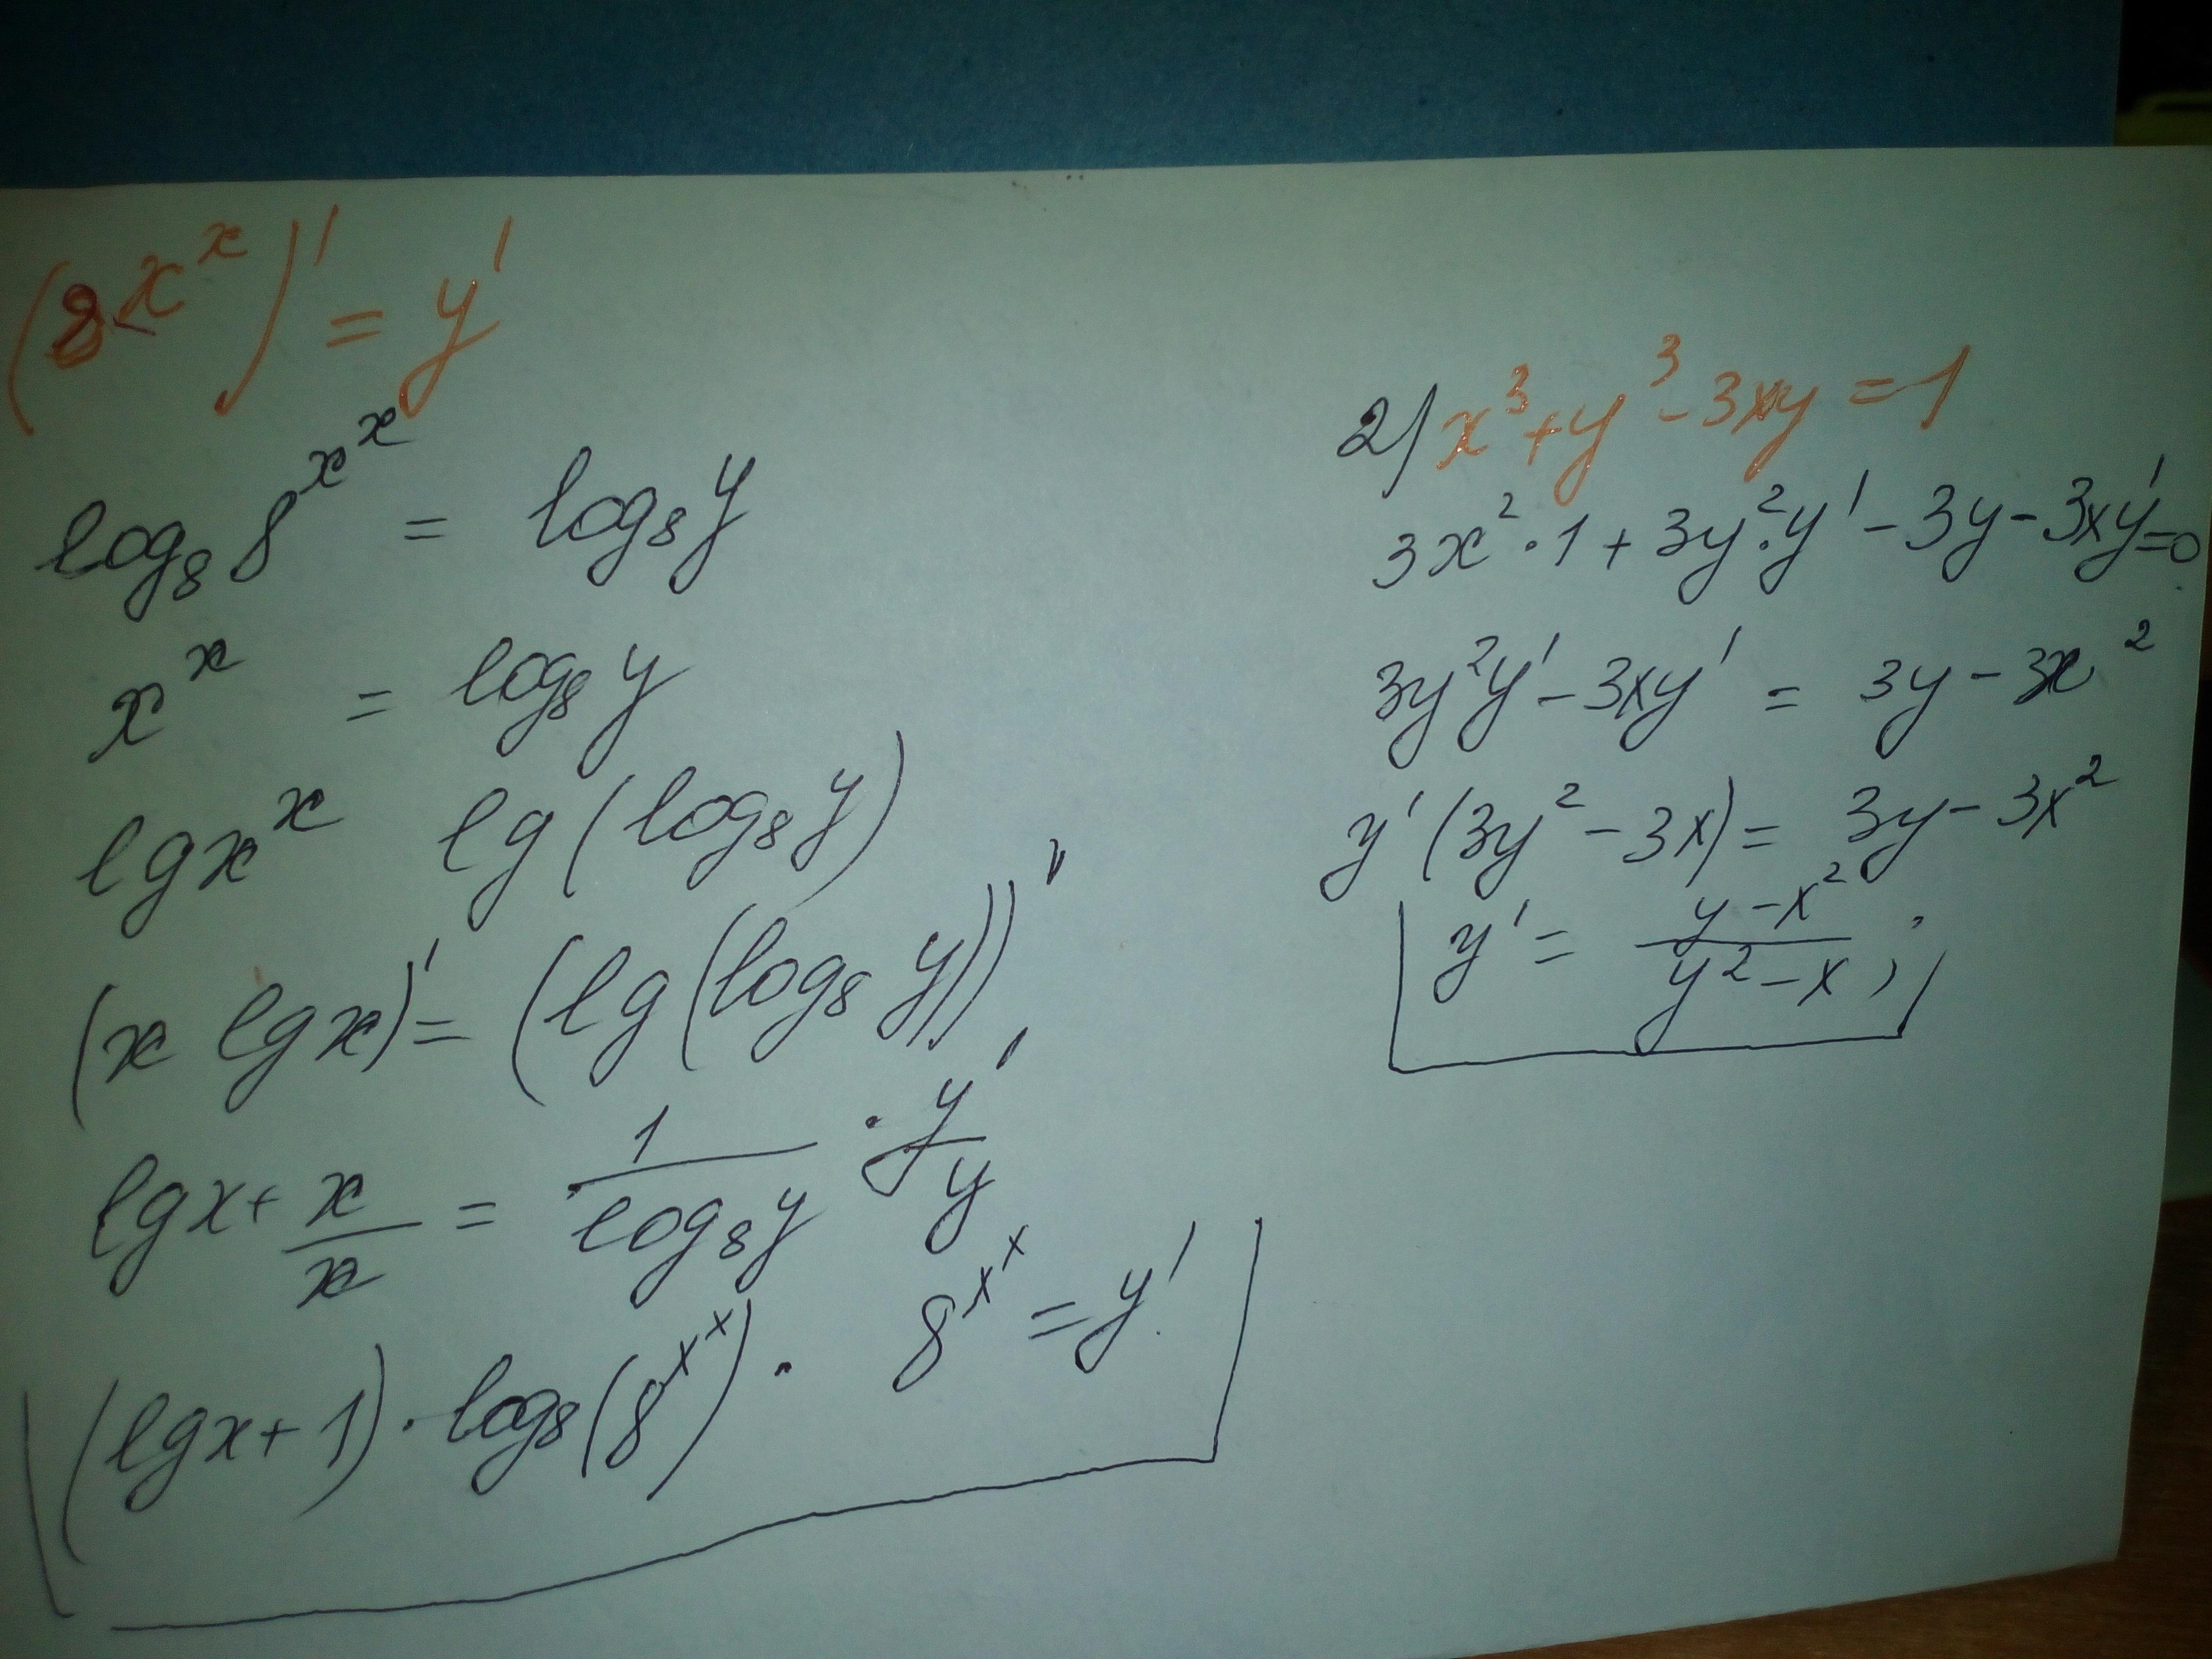 (8^x^x)' = y'
log₈ 8^x^x = log₈ y
x^x = log₈ y
lg x^x lg (log₈ y)
(x lg x)' = (lg (log₈ y))'
lg x + x/x = 1/(log₈ y) · y'/y
(lg x + 1) · log₈ (8^x^x) · 8^x^x = y'
2) x³ + y³ - 3xy = 1
3x² · 1 + 3y² · y' - 3y - 3xy' = 0
3y²y' - 3xy' = 3y - 3x²
y' (3y² - 3x) = 3y - 3x²
y' = (y - x²)/(y² - x) ;